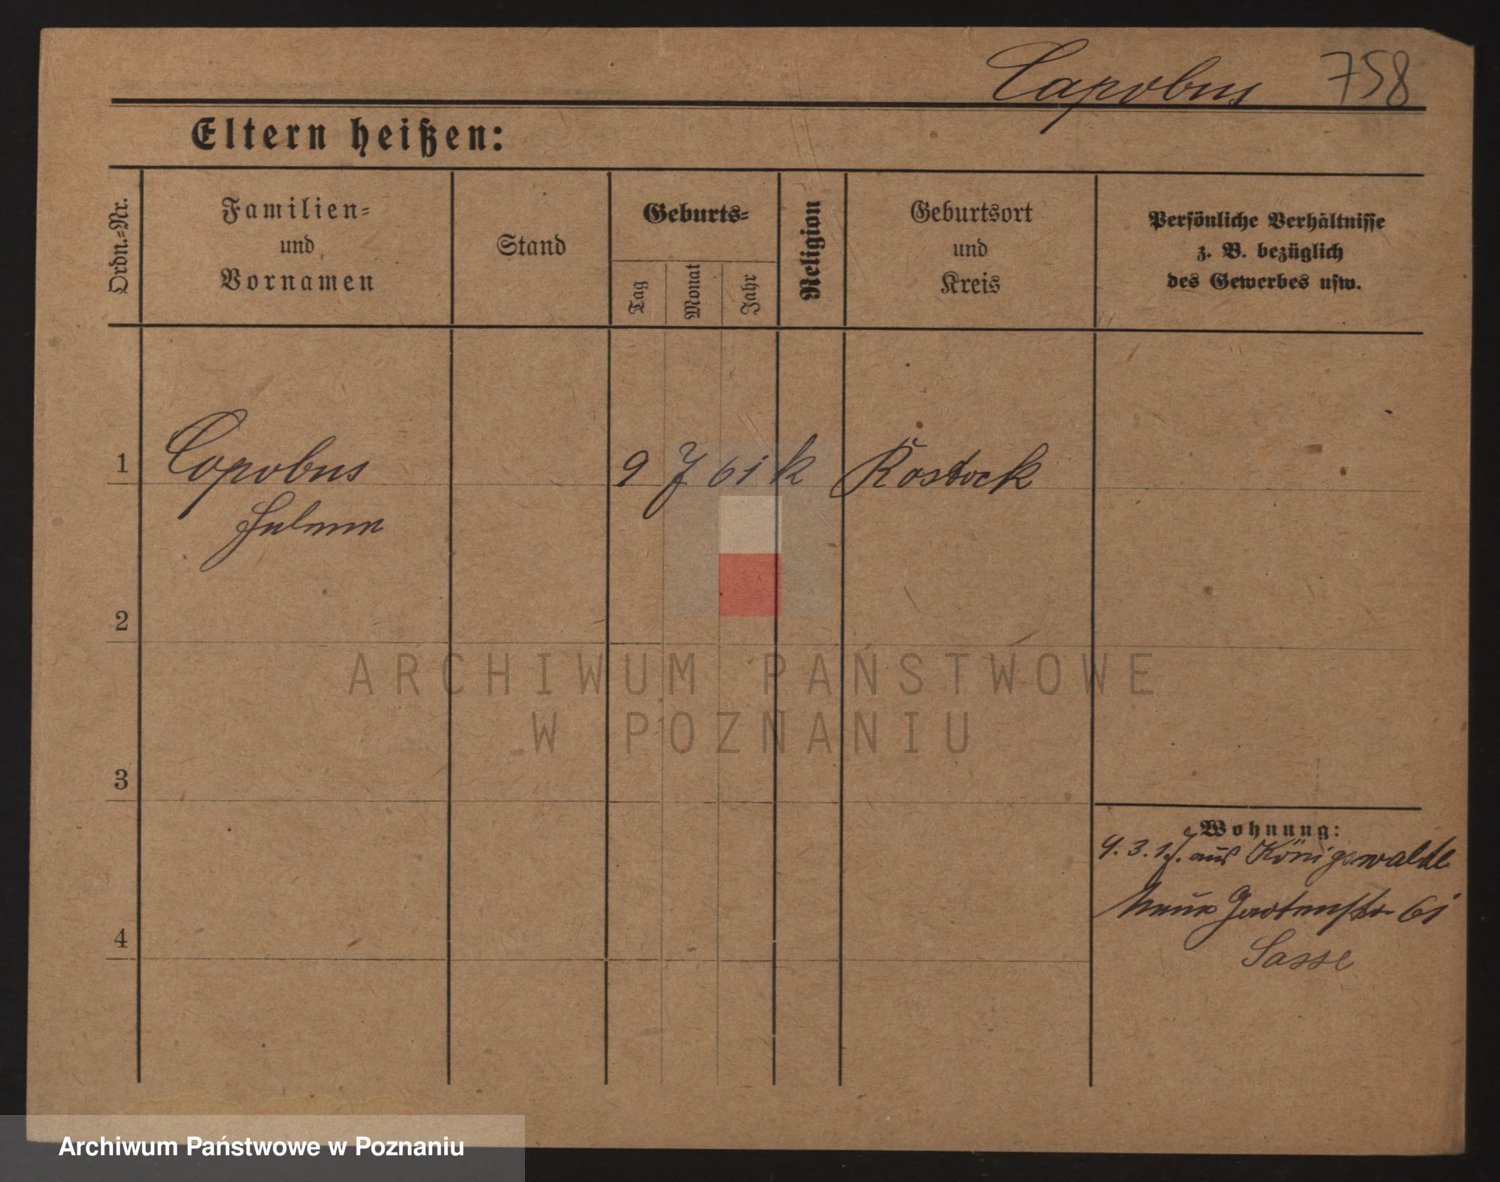 Capobus 758
Eltern heißen:
Ordn.-Nr.
Familien-
und
Vornamen
Stand
Geburts-
Tag
Monat
Jahr
Religion
Geburtsort
und
Kreis
Persönliche Verhältnisse
z. B. bezüglich
des Gewerbes usw.
1 Capobus 9 7 61 k Rostock
2
3
4
Wohnung:
4.3.17. aus Königswalde
Neue Gartenstr. 61
Sasse
ARCHIWUM PAŃSTWOWE
W POZNANIU
Archiwum Państwowe w Poznaniu